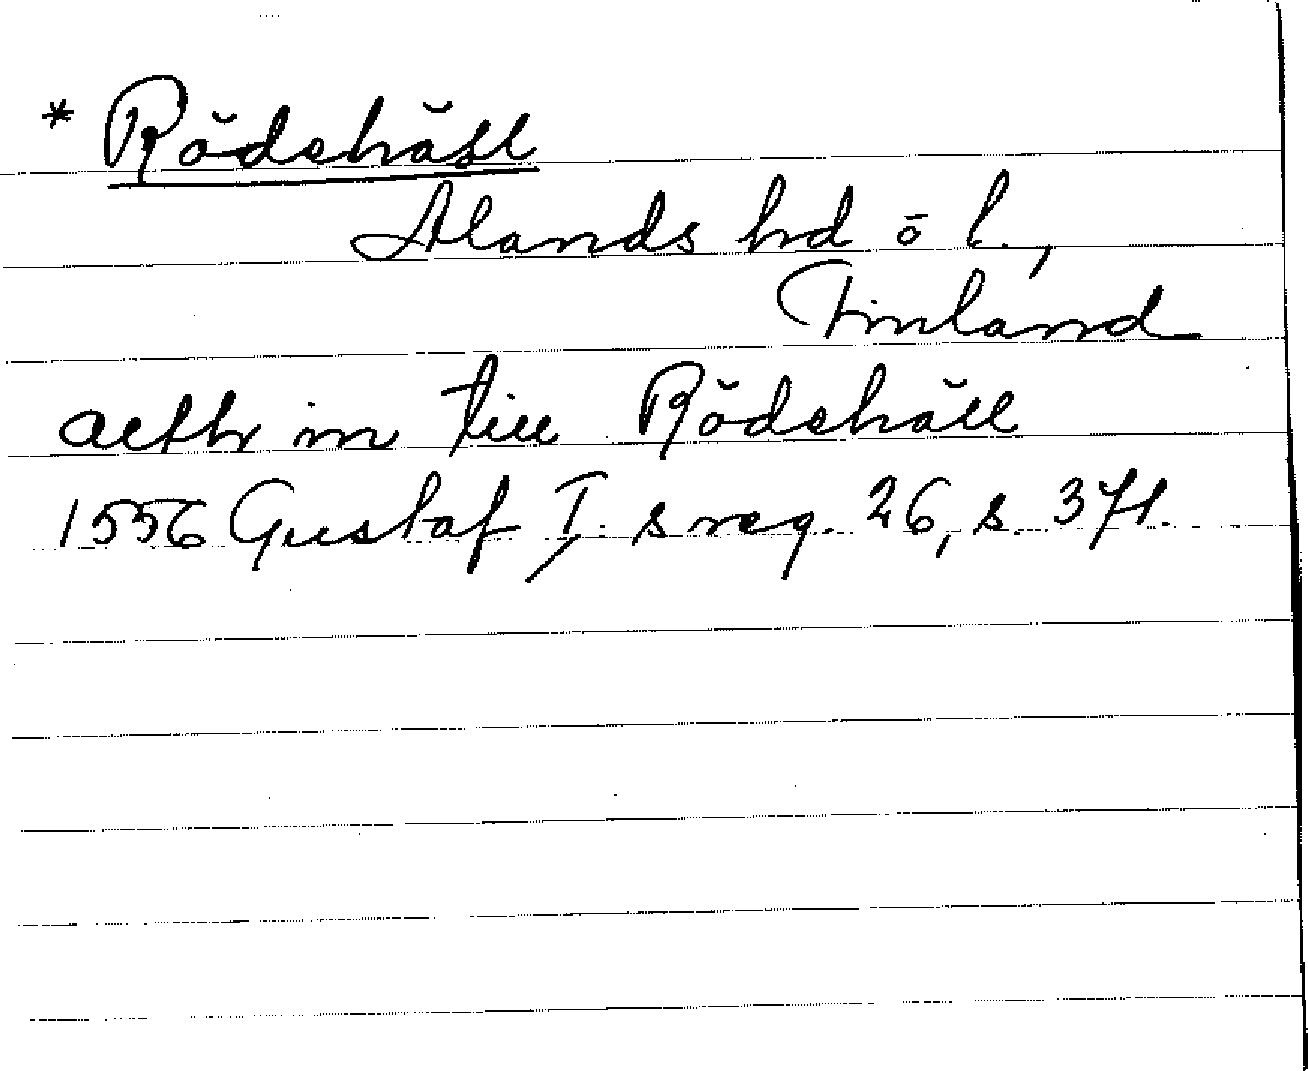 * Rödshäll
Ålands hd o l.,
Finland
aeffter in till Rödshäll
1556 Gustaf I:s reg. 26, s. 371.